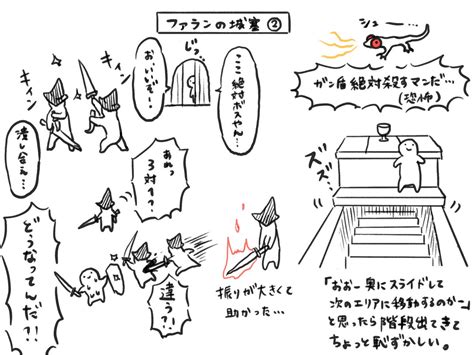 ファランの城塞②
じっ
ここ絶対
ボスやん…
おいいぞー！
キィン
キィン
潰し合え…
あぬっ
3対1？
違う？！
どうなってんだ？！
振りが大きくて
助かった…
シュー…
ガン盾絶対殺すマンだ…
(恐怖)
ズズ…
「おおー奥にスライドして
次のエリアに移動するのかー」
と思ったら階段出てきて
ちょっと恥ずかしい。